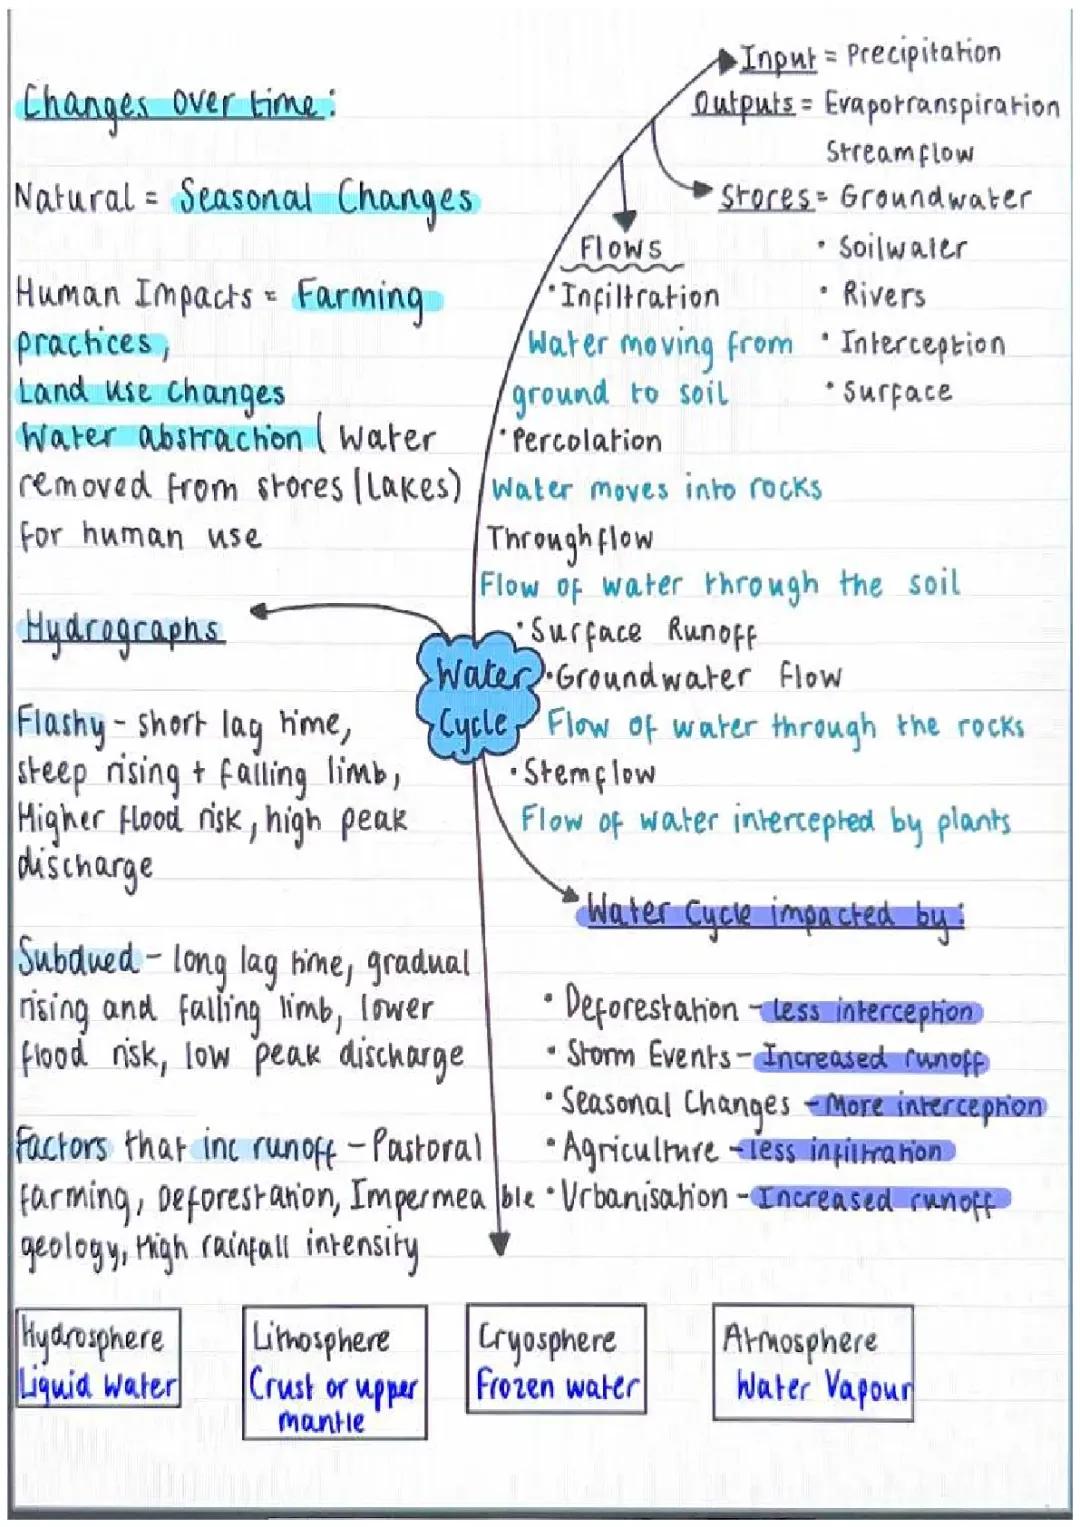 Changes over time:
Natural = Seasonal Changes
Human Impacts = Farming
practices,
Land use changes
Water abstraction ( Water
removed from stores (Lakes)
for human use
Hydrographs
Flashy - short lag time,
steep rising + falling limb,
Higher flood risk, high peak
discharge
Subdued - long lag time, gradual
rising and falling limb, lower
flood risk, low peak discharge
Factors that inc runoff - Pastoral
farming, Deforestation, Impermeable
geology, High rainfall intensity
Water
Cycle
Input = Precipitation
Outputs = Evapotranspiration
Streamflow
Stores = Groundwater
• Soilwater
• Rivers
• Interception
• Surface
Flows
• Infiltration
Water moving from
ground to soil
• Percolation
Water moves into rocks
Throughflow
Flow of water through the soil
• Surface Runoff
• Groundwater flow
Flow of water through the rocks
• Stemflow
Flow of water intercepted by plants
Water Cycle impacted by:
• Deforestation - less interception
• Storm Events - Increased runoff
• Seasonal Changes - More interception
• Agriculture - less infiltration
• Urbanisation - Increased runoff
Hydrosphere
Liquid Water
Lithosphere
Crust or upper
mantle
Cryosphere
Frozen water
Atmosphere
Water Vapour